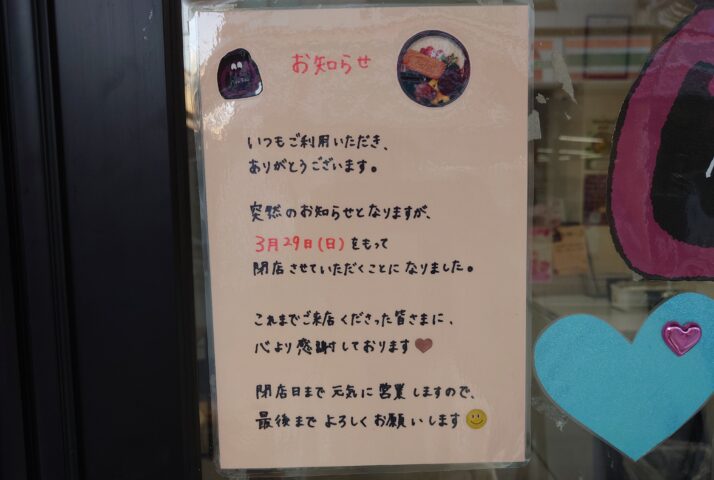 お知らせ
いつもご利用いただき、
ありがとうございます。
突然のお知らせとなりますが、
3月29日(日)をもって
閉店させていただくことになりました。
これまでご来店くださった皆さまに、
心より感謝しております
閉店日まで元気に営業しますので、
最後までよろしくお願いします